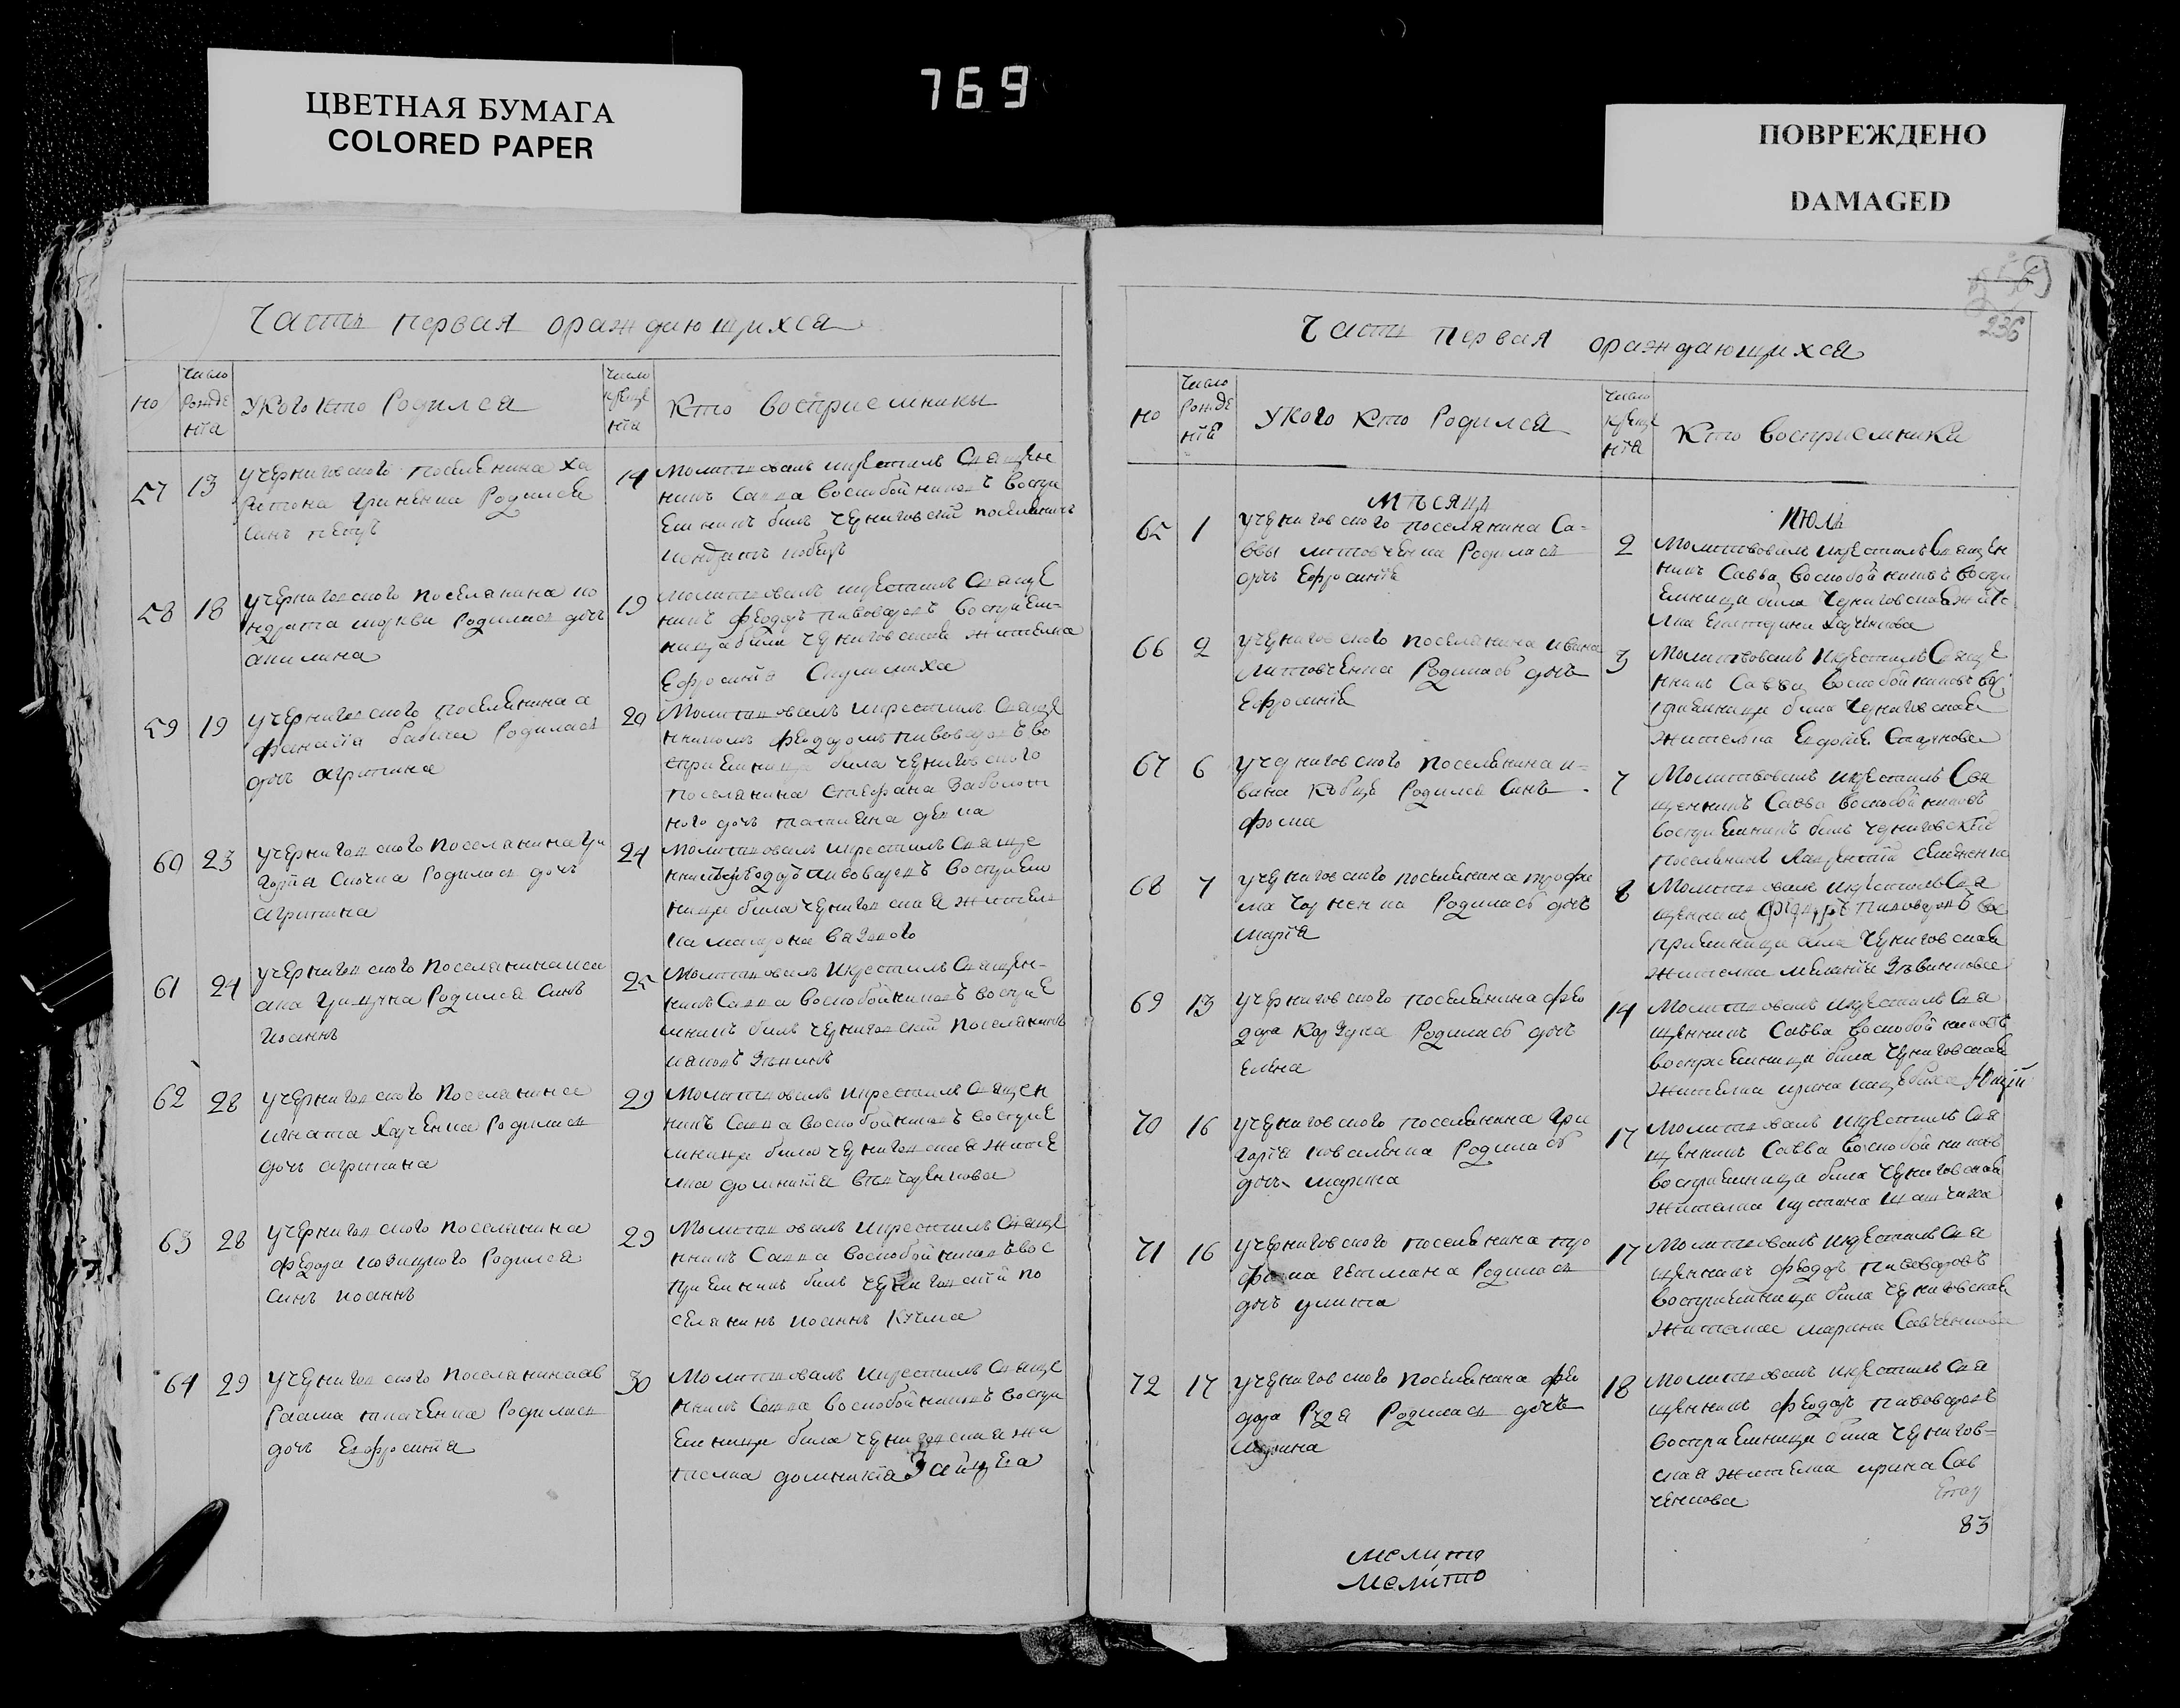 ЦВЕТНАЯ БУМАГА
COLORED PAPER
769
ПОВРЕЖДЕНО
DAMAGED
Часть первая ораждающихся
но
число рожде нїа
У кого кто Родился
число креще нїа
Кто восприемники
57 13
У черниговского поселянина Ха
ритона Гриненка Родился
синъ петръ
14
Молитвовалъ икрестилъ Священ
никъ Савва воскобойниковъ воспри
емникъ билъ черниговскїй поселянинъ
58 18
У черниговского поселянина ко
ндрата Родилась дочъ
акилина
19
молитвовалъ икрестилъ Свяще
никъ феодоръ пивоваровъ восприем-
ница била черниговская жителка
Ефросинїа
59 19
У черниговского поселянина а
фанасїа бабича Родилась
дочъ агрипина
20
Молитвовалъ икрестилъ Свяще
нникомъ феодоромъ пивоваровъ во
сприемница била черниговского
поселянина Стефана Заболот
ного дочъ татиана девка
60 23
У черниговского поселянина гри
горїа Родилась дочъ
агрипина
24
молитвовалъ икрестилъ Свяще
нникъ феодоръ пивоваровъ восприем
ница била черниговская жител
ка матрона
61 24
У черниговского поселянина иса
ака Грицука Родился Синъ
Иоаннъ
25
Молитвовалъ Икрестилъ Священ-
никъ Савва воскобойниковъ восприе
мникъ билъ черниговскїй поселянинъ
иаковъ
62 28
У черниговского Поселянина
игната Харченка Родилась
дочъ агрипина
29
Молитвовалъ икрестилъ Священ
никъ Савва воскобойниковъ восприе
мница била черниговская жите
лка домникїа
63 28
У черниговского поселянина
феодора новицкого Родился
синъ иоаннъ
29
Молитвовалъ икрестилъ Свяще
нникъ Савва воскобойниковъ вос
приемникъ билъ черниговскїй по
селянинъ иоаннъ Кучма
64 29
У черниговского поселянина ав
раама ткаченка Родилась
дочъ Евфросинїа
30
Молитвовалъ икрестилъ Свяще
нникъ Савва воскобойниковъ воспри
емница била черниговская жи
телка домникїа Зайцева
236
Часть первая ораждающихся
но
число Рожде нїя
У кого Кто Родился
число креще нїа
Кто восприемники
мѣсяцъ
июль
65 1
Учерниговского поселянина Са-
ввы литовченка Родилась
дочъ Ефросинїа
2
Молитвовалъ икрестилъ Священ
никъ Савва воскобойниковъ воспри
емница била Черниговская жите
лка Екатерина Харченкова
66 2
Учерниговского поселянина ивана
Литовченка Родиласъ дочъ
Ефросинїя
3
Молитвовалъ Икрестилъ Свяще
нникъ Савва воскобойниковъ вос
приемница била черниговская
жителка Евдокїя
67 6
Учерниговского поселянина и-
вана Родился Синъ
фома
7
Молитвовалъ икрестилъ Свя
щенникъ Савва воскобойниковъ
восприемникъ билъ черниговскїй
поселянинъ Лаврентїй Семененко
68 7
учерниговского поселянина трофи
ма Родиласъ дочъ
марїя
8
Молитвовалъ икрестилъ Свя
щенникъ феодоръ пивоваровъ вос
приемница била Черниговская
жителка меланїя
69 13
учерниговского поселянина фео
дора Корзуна Родиласъ дочъ
Елена
14
Молитвовалъ икрестилъ Свя
щенникъ Савва воскобойниковъ
восприемница била Черниговская
жителка ирина
70 16
учерниговского поселянина гри
горїа коваленка Родиласъ
дочъ марина
17
Молитвовалъ икрестилъ Свя
щенникъ Савва воскобойниковъ
восприемница била Черниговская
жителка
71 16
учерниговского поселянина тро
фима гетмана Родилась
дочъ улита
17
Молитвовалъ икрестилъ Свя
щенникъ феодоръ пивоваровъ
восприемница била черниговская
жителка марина Савченкова
72 17
учерниговского поселянина фео
дора Родилась дочъ
марина
18
Молитвовалъ икрестилъ Свя
щенникъ феодоръ пивоваровъ
восприемница била чернигов-
ская жителка ирина Сав
ченкова
83
мелито
мелито